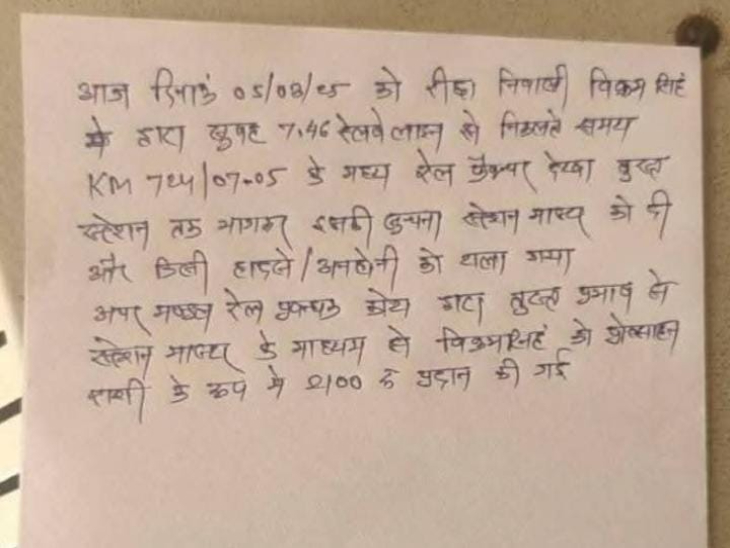 आज दिनांक 05/08/25 को रीछा निवासी विक्रम सिंह
के द्वारा सुबह 7.46 रेलवे लाइन से निकलते समय
KM 724/07-05 के मध्य रेल फ्रैक्चर देखा तुरन्त
स्टेशन तक भागकर इसकी सुचना स्टेशन मास्टर को दी
और किसी हादसे/अनहोनी को टाला गया
अपर मण्डल रेल प्रबन्धक कोटा द्वारा तुरन्त प्रभाव से
स्टेशन मास्टर के माध्यम से विक्रमसिंह को प्रोत्साहन
राशी के रूप मे 2100 रू प्रदान की गई